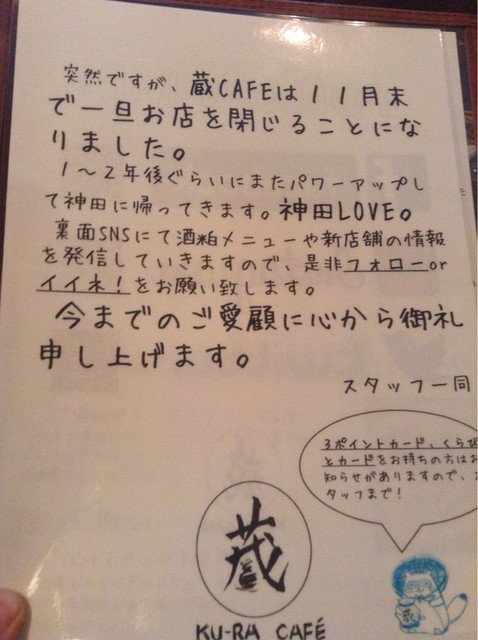 突然ですが、蔵CAFEは11月末
で一旦お店を閉じることにな
りました。
1~2年後ぐらいにまたパワーアップし
て神田に帰ってきます。神田LOVE。
裏面SNSにて酒粕メニューや新店舗の情報
を発信していきますので、是非フォローor
イイネ!をお願い致します。
今までのご愛顧に心から御礼
申し上げます。
スタッフ一同
3ポイントカード、くらび
とカードをお持ちの方はお
知らせがありますので、ス
タッフまで!
蔵
KU-RA CAFÉ
蔵